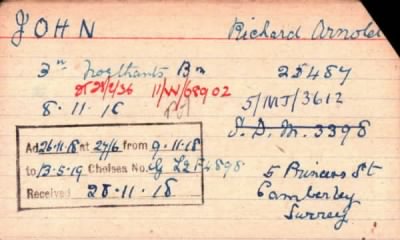 JOHN Richard Arnold
3rd Northants Bn 25487
D 28/2/36 11/W/08902
8.11.18 5/MJ/3612
S.D.M. 3398
Ad 26.11.18 at 27/6 from 9.11.18
to 13.5.19 Chelsea No.
Received 28.11.18
5 Princess St
Camberley
Surrey